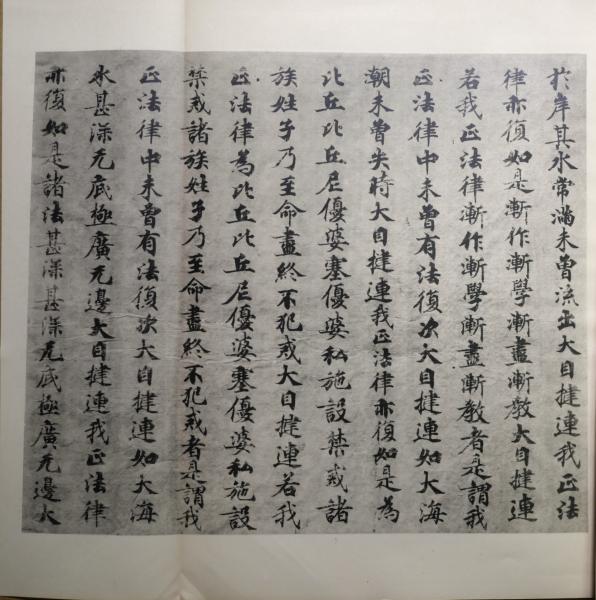 於岸其水常滿未曾流出大目揵連我正法
律亦復如是漸作漸學漸盡漸教大目揵連
若我正法律漸作漸學漸盡漸教者是謂我
正法律中未曾有法復次大目揵連如大海
潮未曾失時大目揵連我正法律亦復如是為
比丘比丘尼優婆塞優婆私施設禁戒諸
族姓子乃至命盡終不犯戒大目揵連若我
正法律為比丘比丘尼優婆塞優婆私施設
禁戒諸族姓子乃至命盡終不犯戒者是謂我
正法律中未曾有法復次大目揵連如大海
水甚深无底極廣无邊大目揵連我正法律
亦復如是諸法甚深甚深无底極廣无邊大